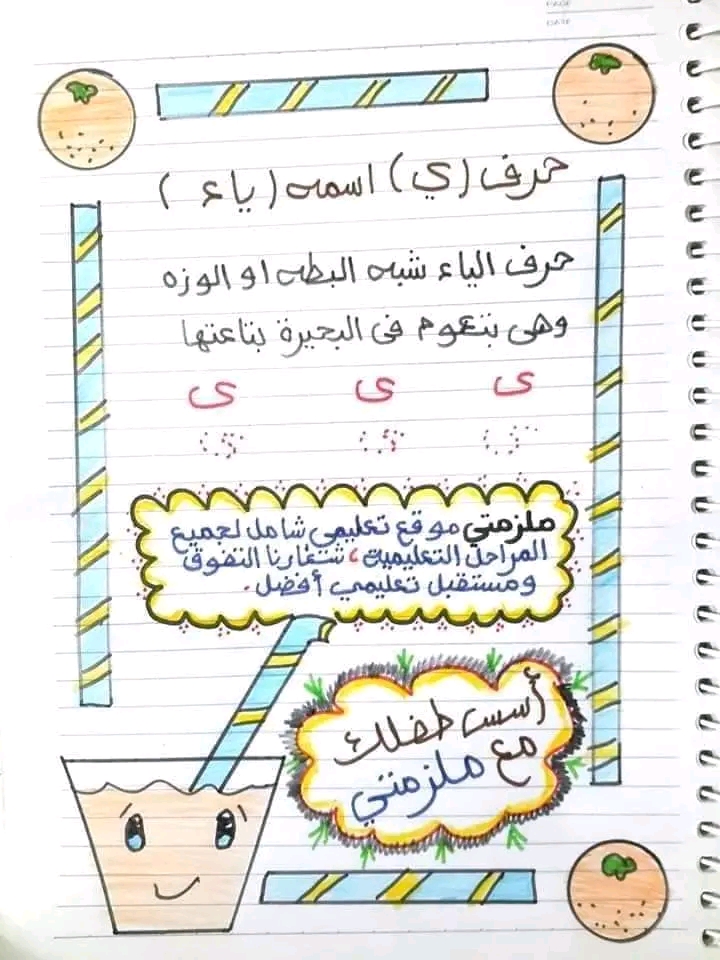 PAGE
DATE
حرف (ي) اسمه (ياء)
حرف الياء شبه البطه او الوزه
وهى بتعوم فى البحيرة بتاعتها
ى ى ى
ى ى ى
ملزمتي موقع تعليمي شامل لجميع
المراحل التعليمية، شعارنا التفوق
ومستقبل تعليمي أفضل.
أسس طفلك
مع ملزمتي